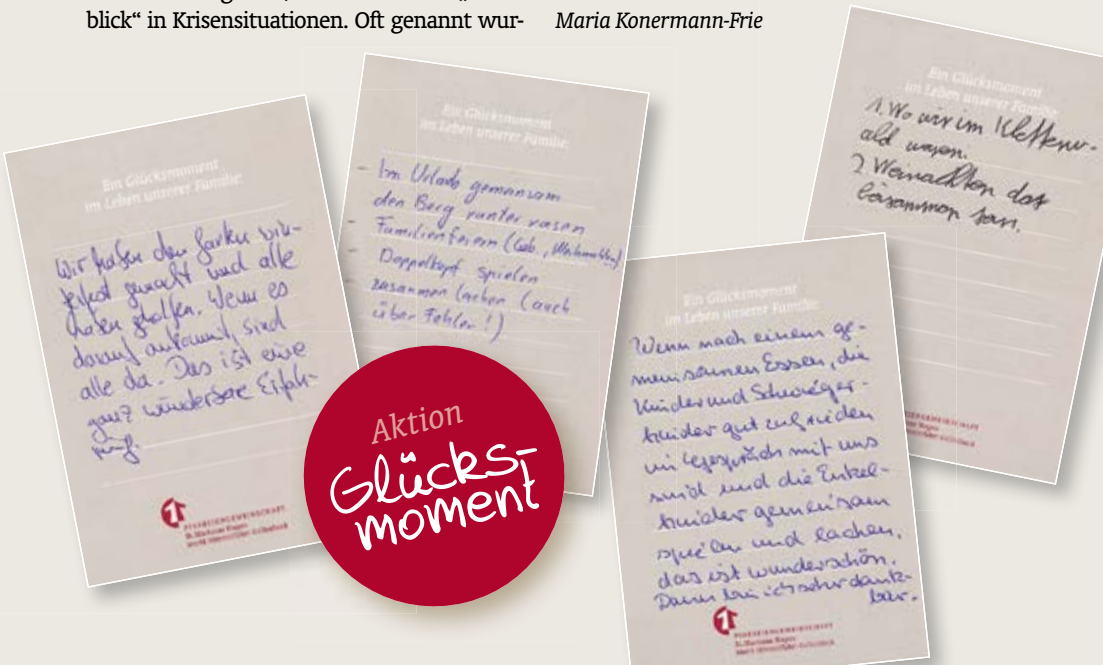 blick“ in Krisensituationen. Oft genannt wur-
Maria Konermann-Frie
Ein Glücksmoment
im Leben unserer Familie:
Wir haben den Garten win-
terfest gemacht und alle
haben geholfen. Wenn es
darauf ankommt, sind
alle da. Das ist eine
ganz wunderbare Erfah-
rung.
PFARREIENGEMEINSCHAFT
Ein Glücksmoment
im Leben unserer Familie:
- Im Urlaub gemeinsam
den Berg runter rasen
- Familienfeiern (Geb., Weihnachten)
- Doppelkopf spielen
- zusammen lachen (auch
über Fehler!)
Aktion
Glücks-
moment
Ein Glücksmoment
im Leben unserer Familie:
Wenn nach einem ge-
meinsamen Essen, die
Kinder und Schwieger-
kinder gut zufrieden
im Gespräch mit uns
sind und die Enkel-
kinder gemeinsam
spielen und lachen,
das ist wunderschön.
Dann bin ich sehr dank-
bar.
PFARREIENGEMEINSCHAFT
Ein Glücksmoment
im Leben unserer Familie:
1. Wo wir im Kletterw-
ald waren.
2. Weinachten das
beisammen